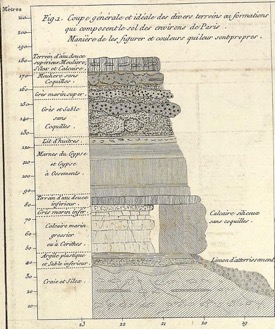 Mètres
Fig. 2. Coupe générale et idéale des divers terreins ou formations
qui composent le sol des environs de Paris
Manière de les figurer et couleurs qui leur sont propres.
Terrein d'eau douce
Silex et Calcaire
Meulière sans
Coquilles.
Grès marin super
Grès et Sable
sans
Coquilles.
Lit d'huitres.
Marnes du Gypse
et Gypse
à Ossements.
Terrein d'eau douce
inférieur.
Grès marin infer.
Calcaire marin
grossier
ou à Cerithes.
Calcaire siliceux
sans coquilles.
Argile plastique
et Sable inférieur
Limon d'atterrissement
Craie et Silex.